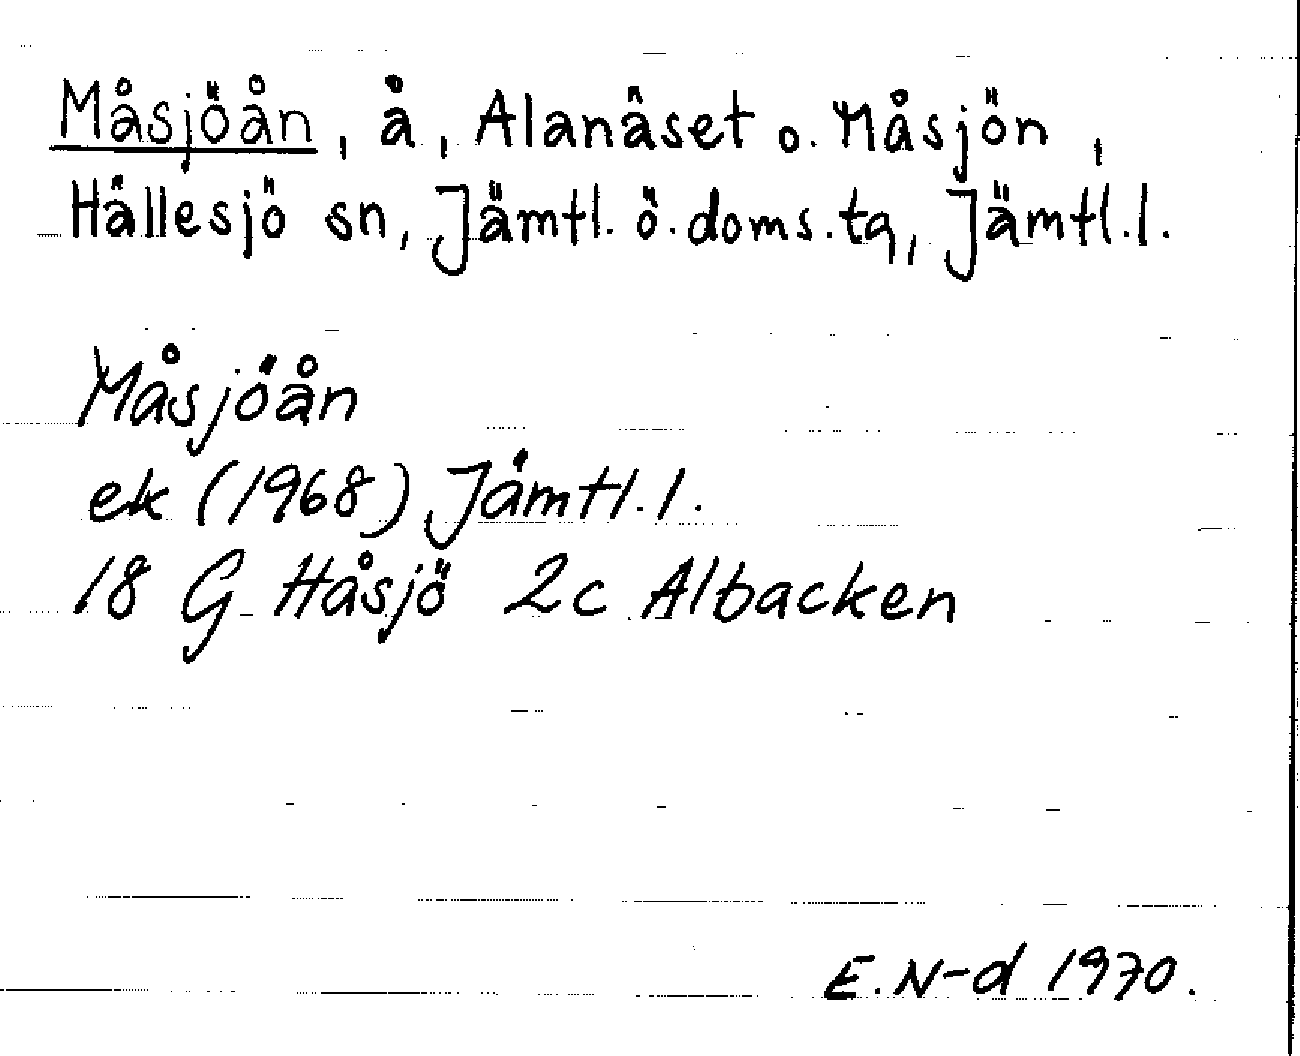 Måsjöån, å, Alanäset o. Måsjön,
Hällesjö sn, Jämtl. ö. doms.tg, Jämtl.l.
Måsjöån
ek (1968) Jämtl.l.
18 G Håsjö 2c Albacken
E.N-d 1970.